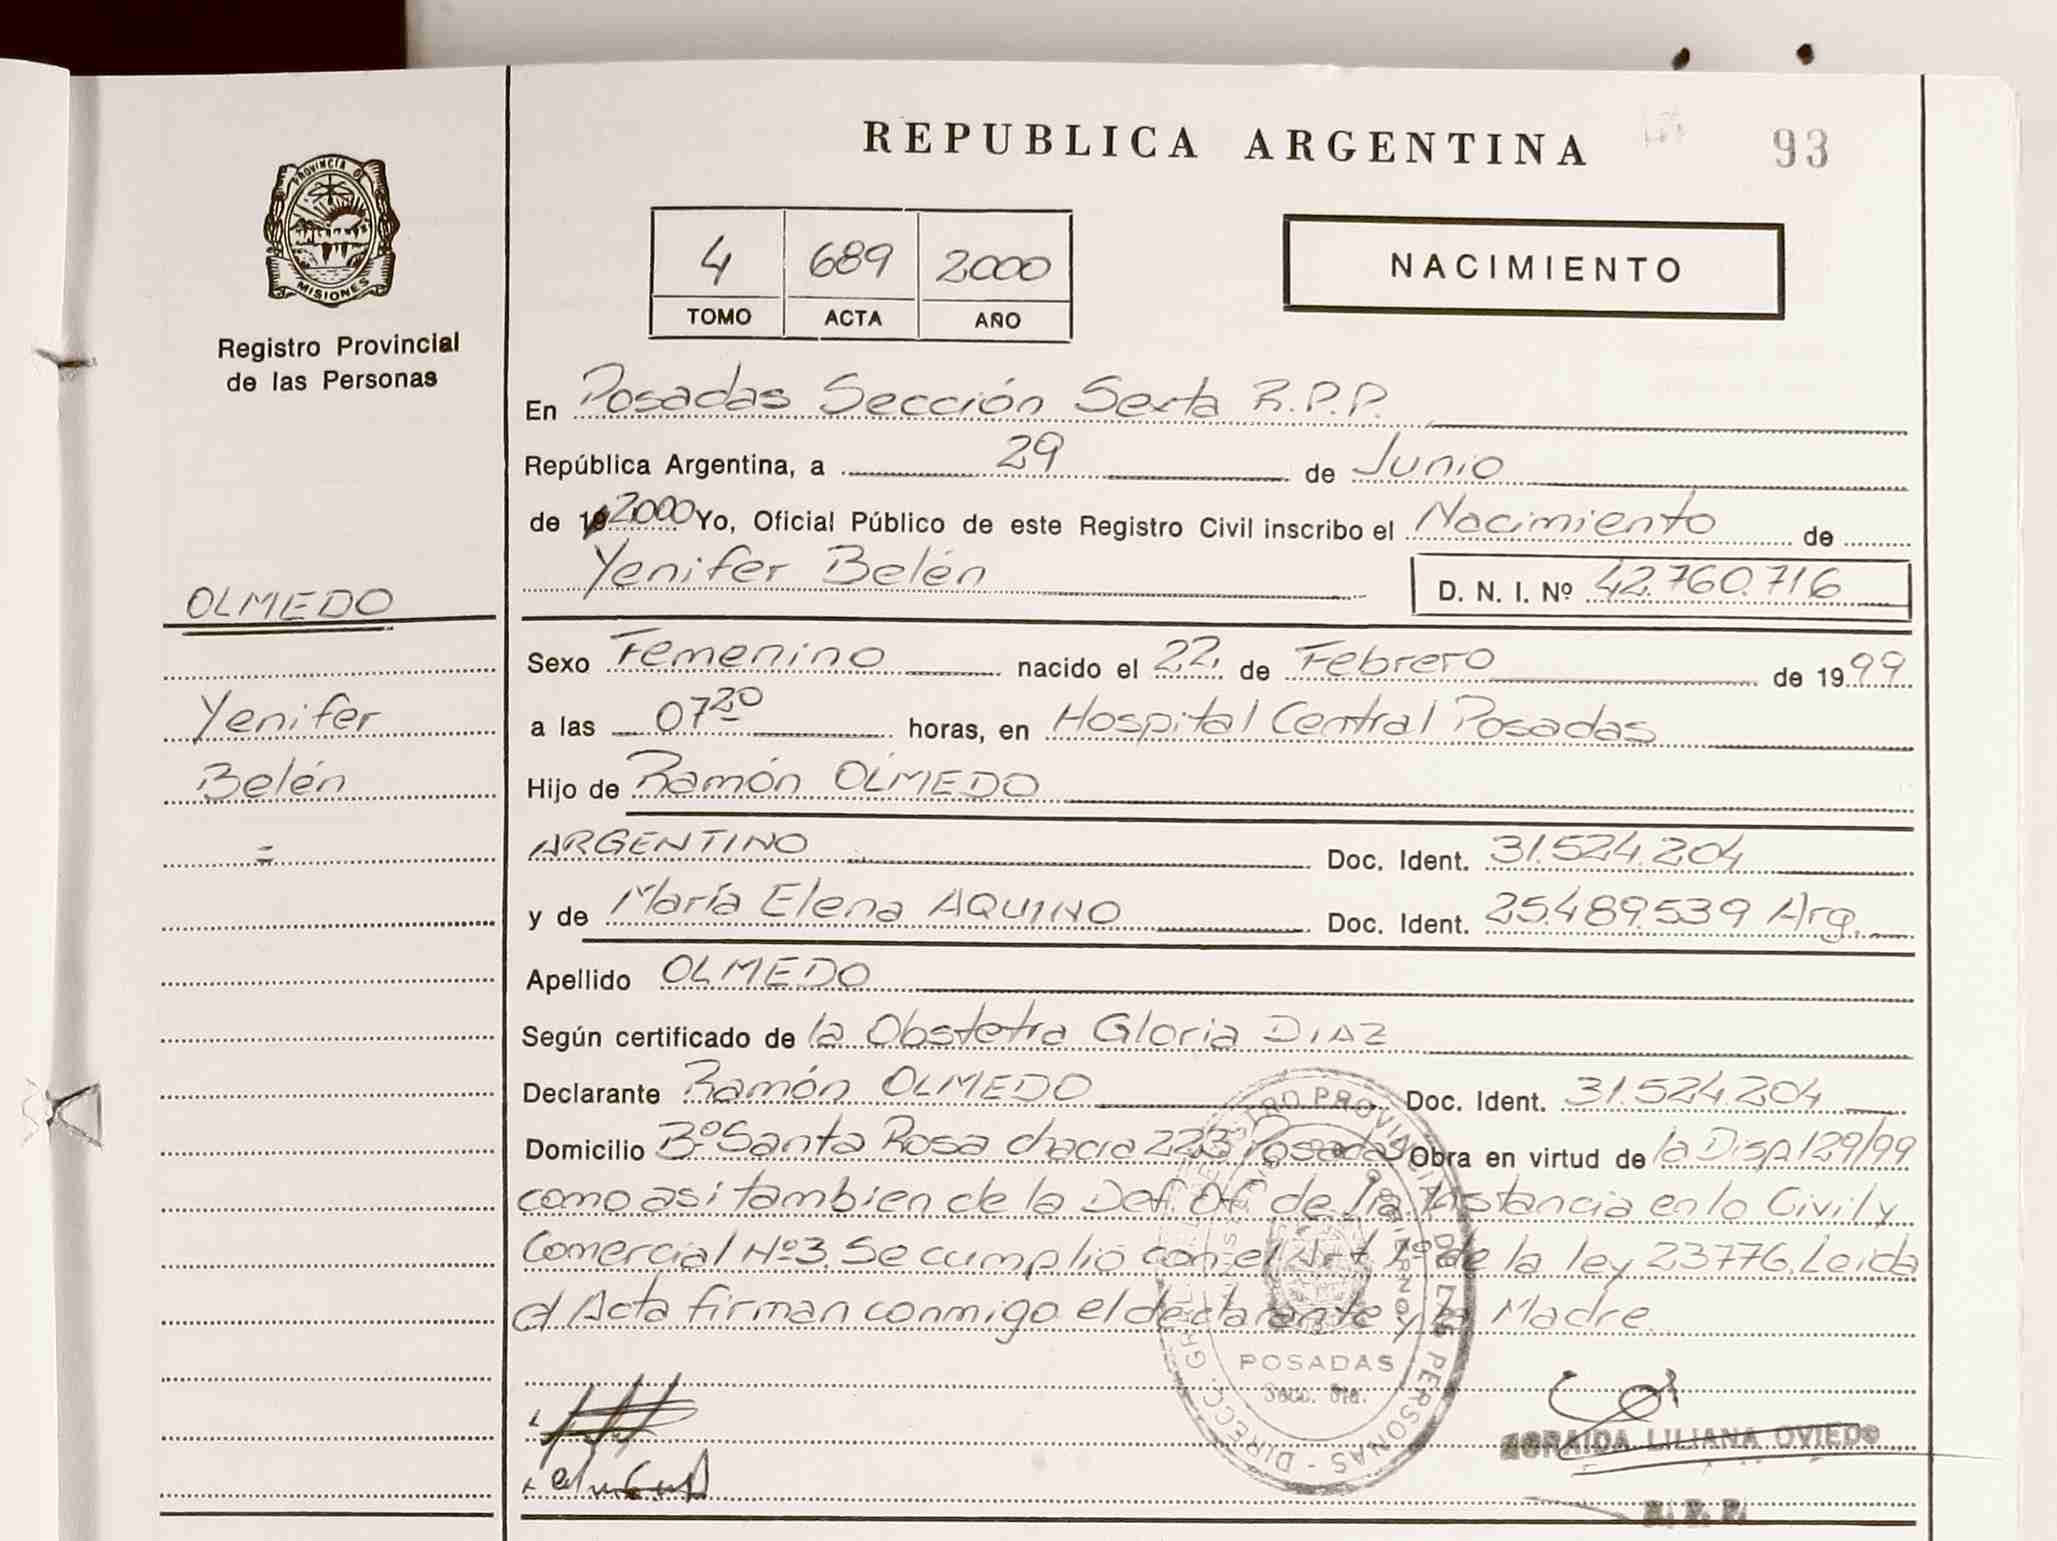 REPUBLICA ARGENTINA
93
PROVINCIA DE
MISIONES
Registro Provincial
de las Personas
4 689 2000
TOMO ACTA AÑO
NACIMIENTO
En Posadas Sección Sexta R.P.P.
República Argentina, a 29 de Junio
de 19 2000 Yo, Oficial Público de este Registro Civil inscribo el Nacimiento de
Yenifer Belén D. N. I. Nº 42.760.716
OLMEDO
Yenifer
Belén
Sexo Femenino nacido el 22 de Febrero de 1999
a las 07 20 horas, en Hospital Central Posadas
Hijo de Ramón OLMEDO
ARGENTINO Doc. Ident. 31.524.204
y de María Elena AQUINO Doc. Ident. 25.489.539 Arg.
Apellido OLMEDO
Según certificado de la Obstetra Gloria DIAZ
Declarante Ramón OLMEDO Doc. Ident. 31.524.204
Domicilio Bº Santa Rosa chacra 223 Posadas Obra en virtud de la Disp 129/99
como asi tambien de la Def. Of. de 1ra. Instancia en lo Civil y
Comercial Nº3. Se cumplió con el Art. 1º de la ley 23776. Leida
el Acta firman conmigo el declarante y la Madre.
POSADAS
Secc. 6ta.
ZORAIDA LILIANA OVIEDO
R. P. P.